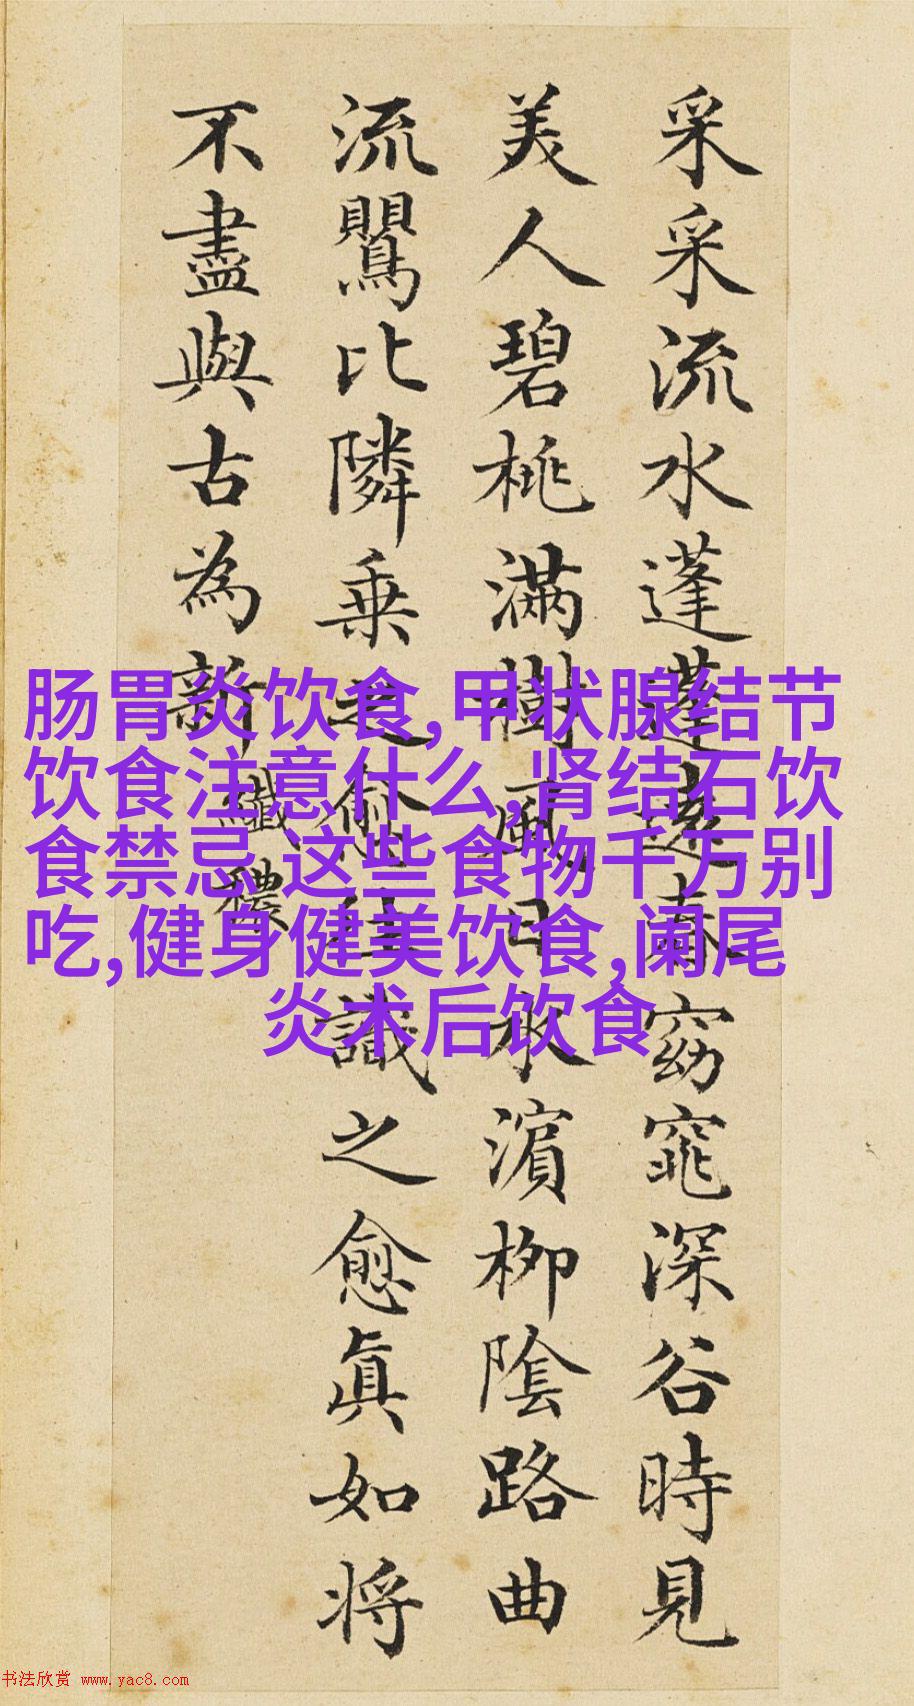 采采流水蓬蓬遠春窈窕深谷時見
美人碧桃滿樹風日水濱柳陰路曲
流鸎比隣乗之愈往識之愈眞如将
不盡與古為新
纖穠
肠胃炎饮食,甲状腺结节
饮食注意什么,肾结石饮
食禁忌,这些食物千万别
吃,健身健美饮食,阑尾
炎术后饮食
书法欣赏 www.yac8.com